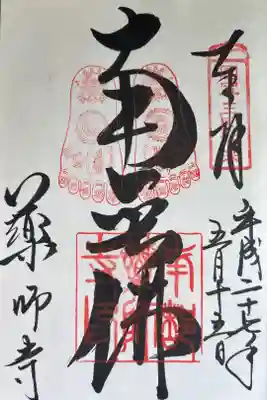 奉拝
平成二十七年
五月十五日
南無佛
藥師寺